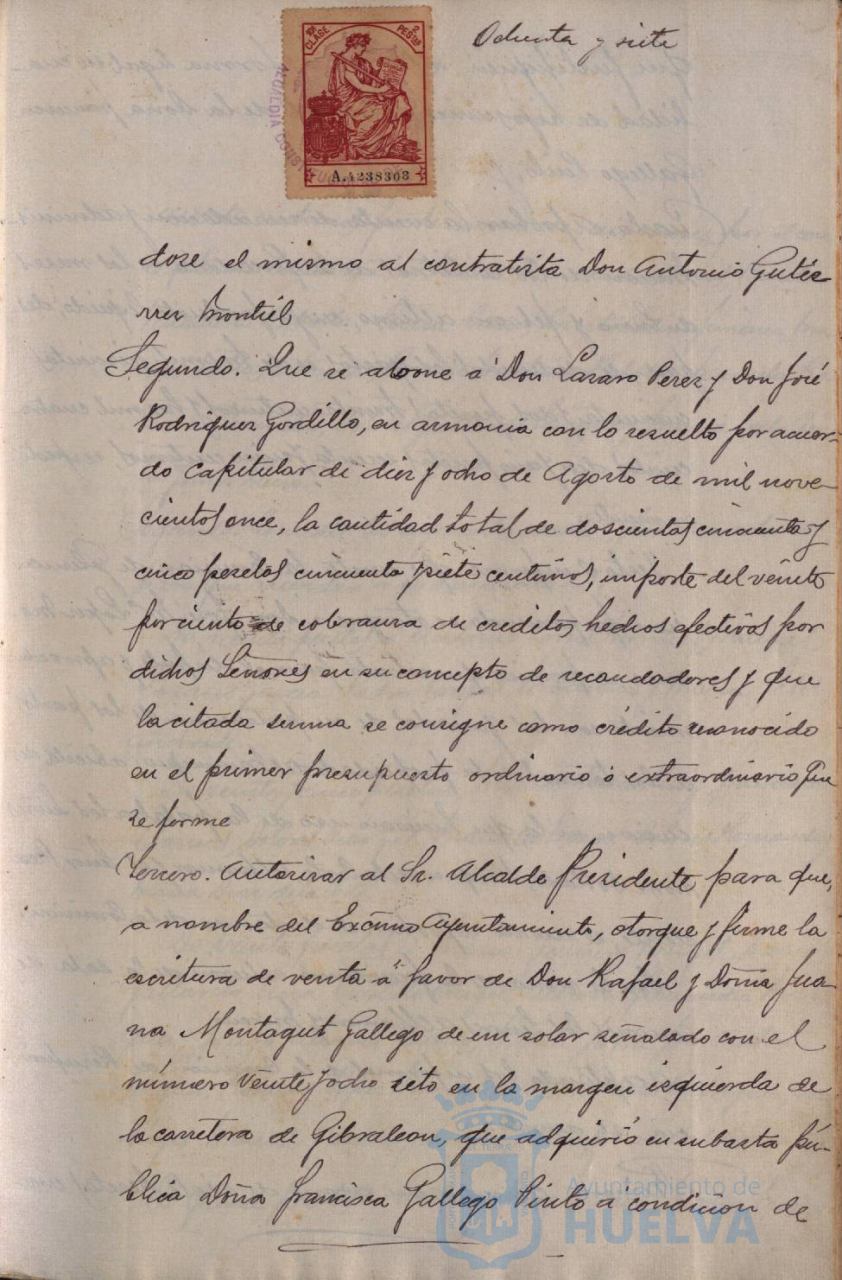 Ochenta y siete
10ª CLASE
2 PESTAS
A.4238303
ALCALDIA CONSTITUCIONAL
dose el mismo al contratista Don Antonio Gutié-
rrez Montiél
Segundo. Que se abone á Don Lazaro Perez y Don José
Rodriguez Gordillo, en armonia con lo resuelto por acuer-
do capitular de diez y ocho de Agosto de mil nove-
cientos once, la cantidad total de doscientas cincuenta y
cinco pesetas cincuenta y siete centimos, importe del veinte
por ciento de cobranza de creditos hechos efectivos por
dichos Señores en su concepto de recaudadores y que
la citada suma se consigne como crédito reconocido
en el primer presupuesto ordinario ó extraordinario que
se forme
Tercero. Autorizar al Sr. Alcalde Presidente para que,
a nombre del Excmo Ayuntamiento, otorgue y firme la
escritura de venta á favor de Don Rafael y Doña Jua-
na Montagut Gallego de un solar señalado con el
número veinte y ocho sito en la margen izquierda de
la carretera de Gibraleon, que adquirió en subasta pú-
blica Doña Francisca Gallego Pinto á condicion de
Ayuntamiento de
HUELVA